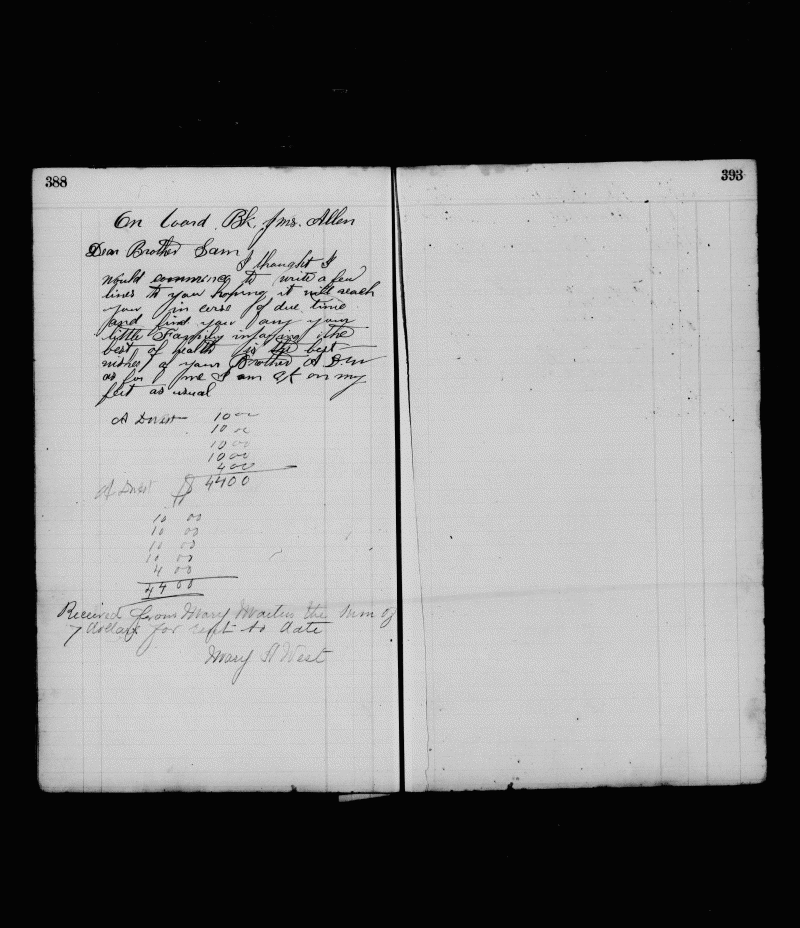 388
On board Bk. Jms. Allen
Dear Brother Sam
I thought I
would commince to write a few
lines to you hoping it will reach
you in corse of due time
and find you any your
little Family injoying the
best of health is the best
wishes of your Brother A Dw
as for me I am ok on my
feet as usual
A Dwest 10 00
10 00
10 00
10 00
4 00
A Dwest $ 44 00
10 00
10 00
10 00
10 00
4 00
44 00
Received from Mary the sum of
7 dollars for rent to date
Mary A West
393